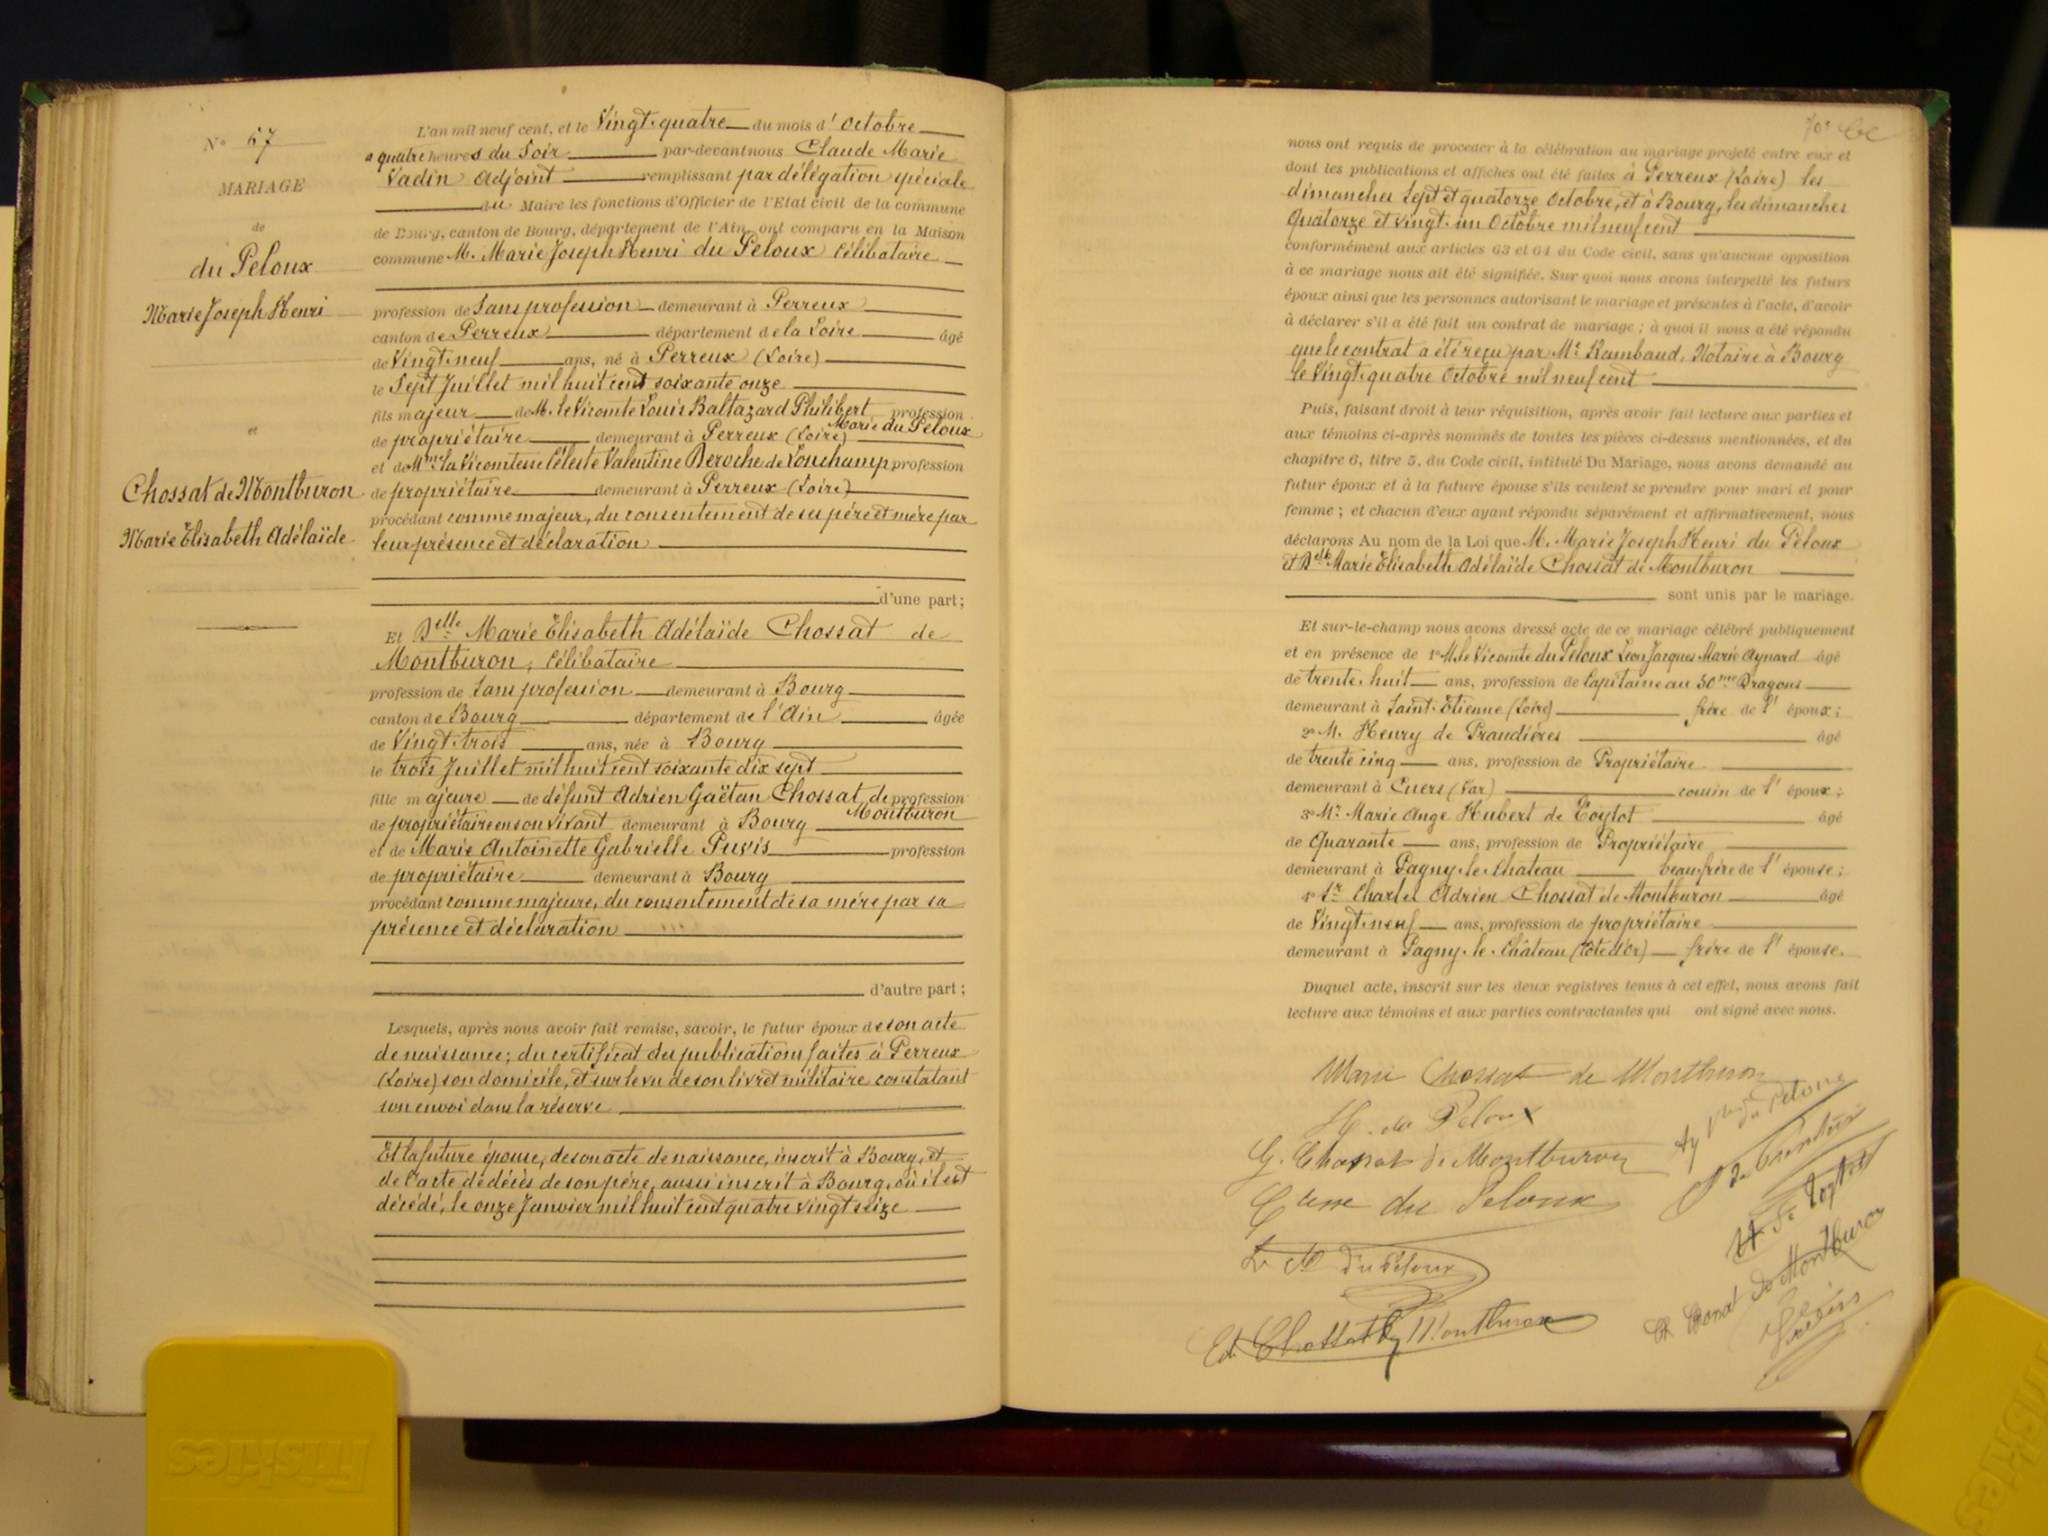 No 67
MARIAGE
de
du Peloux
Marie Joseph Henri
et
Chossat de Montburon
Marie Elisabeth Adélaïde
L'an mil neuf cent, et le Vingt-quatre du mois d'Octobre
a quatre heures du Soir par-devant nous Claude Marie
Vadin Adjoint remplissant par délégation spéciale
du Maire les fonctions d'Officier de l'Etat civil de la commune
de Bourg, canton de Bourg, département de l'Ain, ont comparu en la Maison
commune M. Marie Joseph Henri du Peloux Célibataire
profession de Sans profession demeurant à Perreux
canton de Perreux département de la Loire âgé
de Vingt-neuf ans, né à Perreux (Loire)
le Sept Juillet mil huit cent soixante onze
fils majeur de M. le Vicomte Louis Baltazard Philibert profession
Marie du Peloux
de propriétaire demeurant à Perreux (Loire)
et de Mme la Vicomtesse Céleste Valentine Deroche de Lonchamp profession
de propriétaire demeurant à Perreux (Loire)
procédant comme majeur, du consentement de ses père et mère par
leur présence et déclaration
d'une part;
Et Delle Marie Elisabeth Adélaïde Chossat de
Montburon, Célibataire
profession de Sans profession demeurant à Bourg
canton de Bourg département de l'Ain âgée
de Vingt-trois ans, née à Bourg
le trois Juillet mil huit cent soixante dix sept
fille majeure de défunt Adrien Gaëtan Chossat de profession
Montburon
de propriétaire en son vivant demeurant à Bourg
et de Marie Antoinette Gabrielle Puvis profession
de propriétaire demeurant à Bourg
procédant comme majeure, du consentement de sa mère par sa
présence et déclaration
d'autre part;
Lesquels, après nous avoir fait remise, savoir, le futur époux de son acte
de naissance; du certificat des publications faites à Perreux
(Loire) son domicile, et sur le vu de son livret militaire constatant
son envoi dans la réserve
Et la future épouse, de son acte de naissance, inscrit à Bourg, et
de l'acte de décès de son père, aussi inscrit à Bourg, où il est
décédé, le onze Janvier mil huit cent quatre vingt seize
nous ont requis de procéder à la célébration du mariage projeté entre eux et
dont les publications et affiches ont été faites à Perreux (Loire) les
dimanches Sept et quatorze Octobre, et à Bourg, les dimanches
Quatorze et vingt-un Octobre mil neuf cent
conformément aux articles 63 et 64 du Code civil, sans qu'aucune opposition
à ce mariage nous ait été signifiée. Sur quoi nous avons interpellé les futurs
époux ainsi que les personnes autorisant le mariage et présentes à l'acte, d'avoir
à déclarer s'il a été fait un contrat de mariage; à quoi il nous a été répondu
que le contrat a été reçu par Me Rambaud, Notaire à Bourg
le Vingt-quatre Octobre mil neuf cent
Puis, faisant droit à leur réquisition, après avoir fait lecture aux parties et
aux témoins ci-après nommés de toutes les pièces ci-dessus mentionnées, et du
chapitre 6, titre 5, du Code civil, intitulé Du Mariage, nous avons demandé au
futur époux et à la future épouse s'ils veulent se prendre pour mari et pour
femme; et chacun d'eux ayant répondu séparément et affirmativement, nous
déclarons Au nom de la Loi que M. Marie Joseph Henri du Peloux
et Delle Marie Elisabeth Adélaïde Chossat de Montburon
sont unis par le mariage.
Et sur-le-champ nous avons dressé acte de ce mariage célébré publiquement
et en présence de 1o M. le Vicomte du Peloux Léon Jacques Marie Aynard âgé
de trente-huit ans, profession de Capitaine au 30me Dragons
demeurant à Saint-Etienne (Loire) frère de l'époux;
2o M. Henry de Prandières âgé
de trente cinq ans, profession de Propriétaire
demeurant à Cuers (Var) cousin de l'époux;
3o Mr Marie Ange Hubert de Toytot âgé
de Quarante ans, profession de Propriétaire
demeurant à Pagny-le-Chateau beau-frère de l'épouse;
4o Sr Charles Adrien Chossat de Montburon âgé
de Vingt-neuf ans, profession de propriétaire
demeurant à Pagny-le-Château (Côte d'Or) frère de l'épouse.
Duquel acte, inscrit sur les deux registres tenus à cet effet, nous avons fait
lecture aux témoins et aux parties contractantes qui ont signé avec nous.
Marie Chossat de Montburon
H. du Peloux
G. Chossat de Montburon
du Peloux
du Peloux
H. de Toytot
du Peloux
Chossat de Montburon
Ch. Chossat de Montburon
Friskies
Friskies